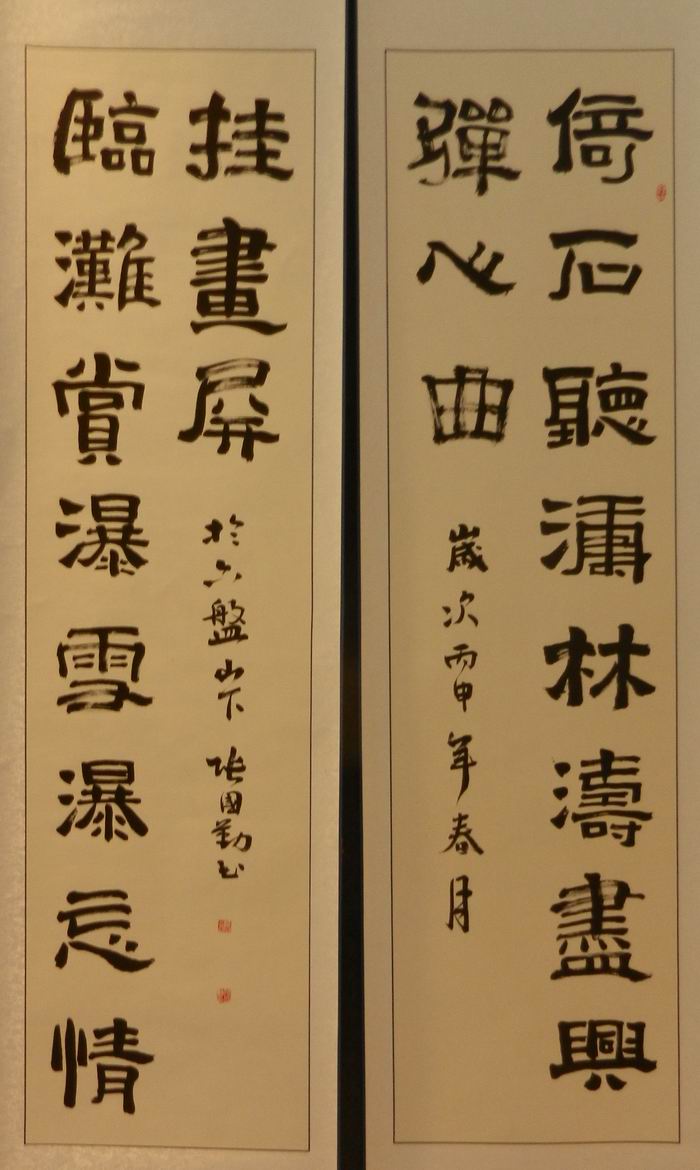 倚石聽潚林濤盡興
彈心曲
歲次丙申年春月
臨灘賞瀑雪瀑忘情
挂畫屏
於六盤山下 张國勤书